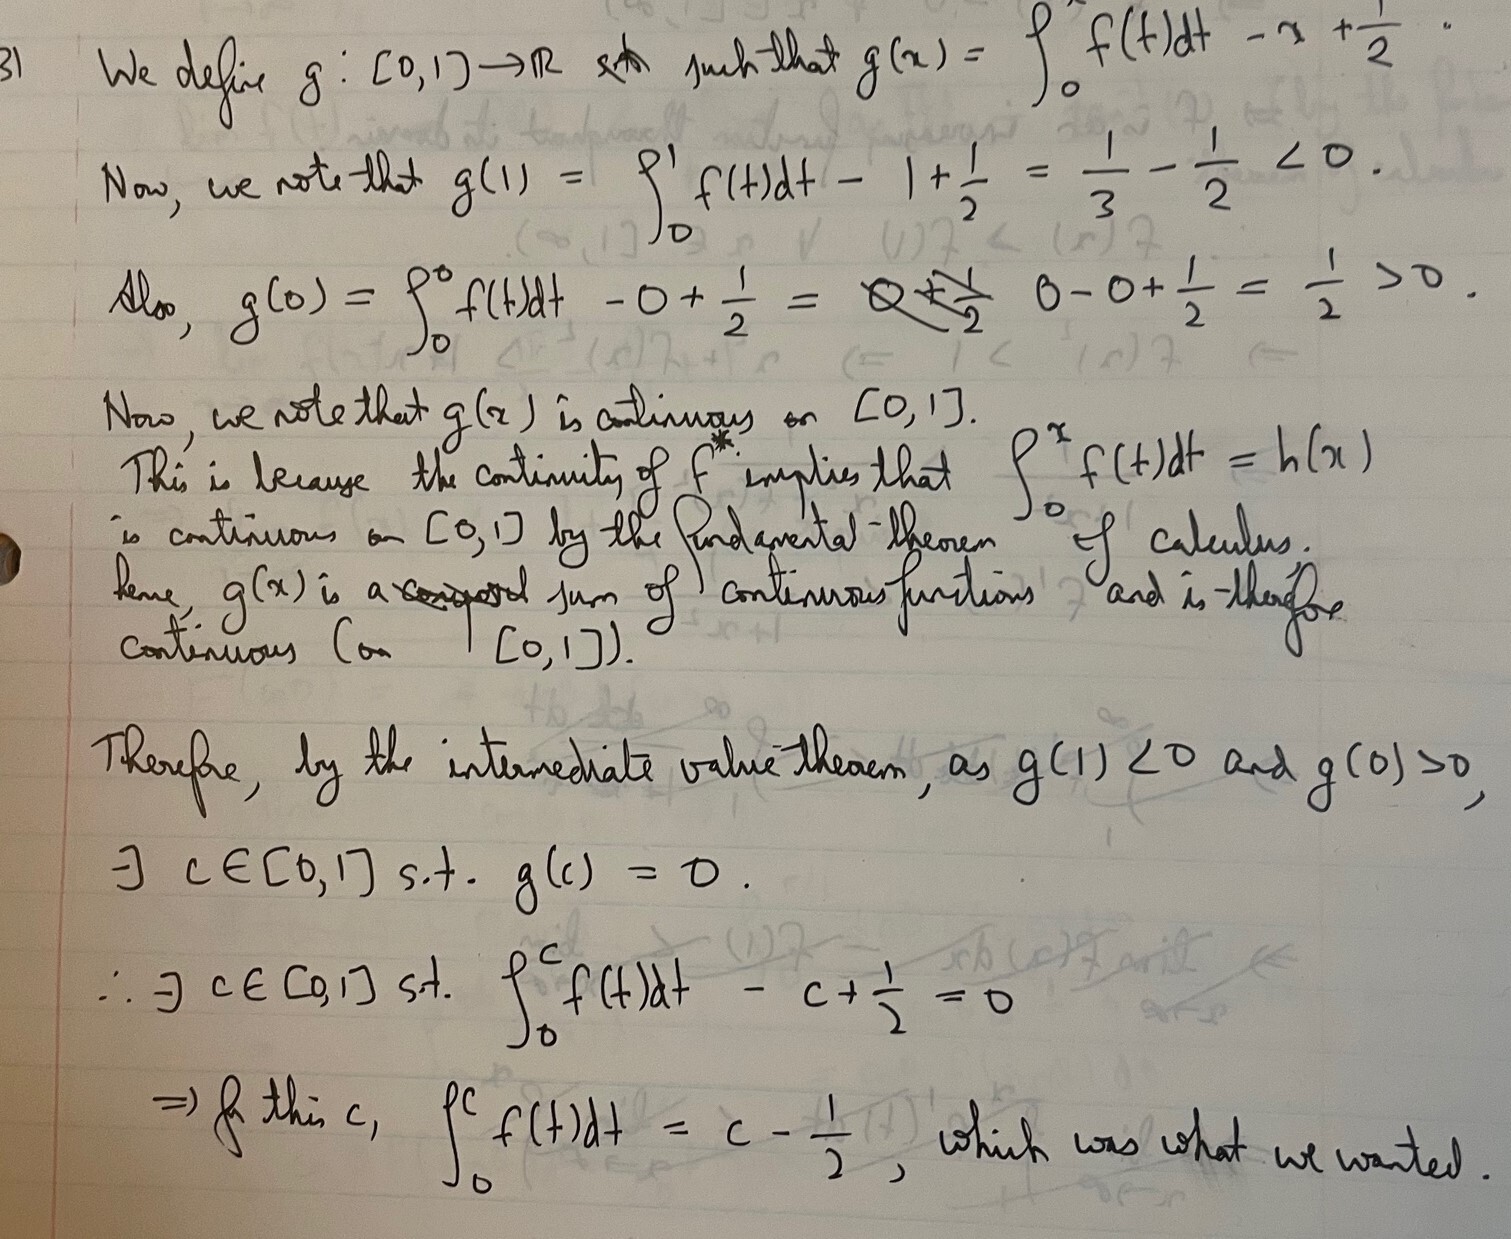 31 We define g : [0,1] → ℝ such that g(x) = ∫₀ˣ f(t)dt - x + 1/2 .
Now, we note that g(1) = ∫₀¹ f(t)dt - 1 + 1/2 = 1/3 - 1/2 < 0.
Also, g(0) = ∫₀⁰ f(t)dt - 0 + 1/2 = 0 - 0 + 1/2 = 1/2 > 0.
Now, we note that g(x) is continuous on [0,1].
This is because the continuity of f* implies that ∫₀ˣ f(t)dt = h(x)
is continuous on [0,1] by the fundamental theorem of calculus.
hence, g(x) is a sum of continuous functions and is therefore
continuous (on [0,1]).
Therefore, by the intermediate value theorem, as g(1) < 0 and g(0) > 0,
∃ c ∈ [0,1] s.t. g(c) = 0.
∴ ∃ c ∈ [0,1] s.t. ∫₀ᶜ f(t)dt - c + 1/2 = 0
⇒ for this c, ∫₀ᶜ f(t)dt = c - 1/2, which was what we wanted.